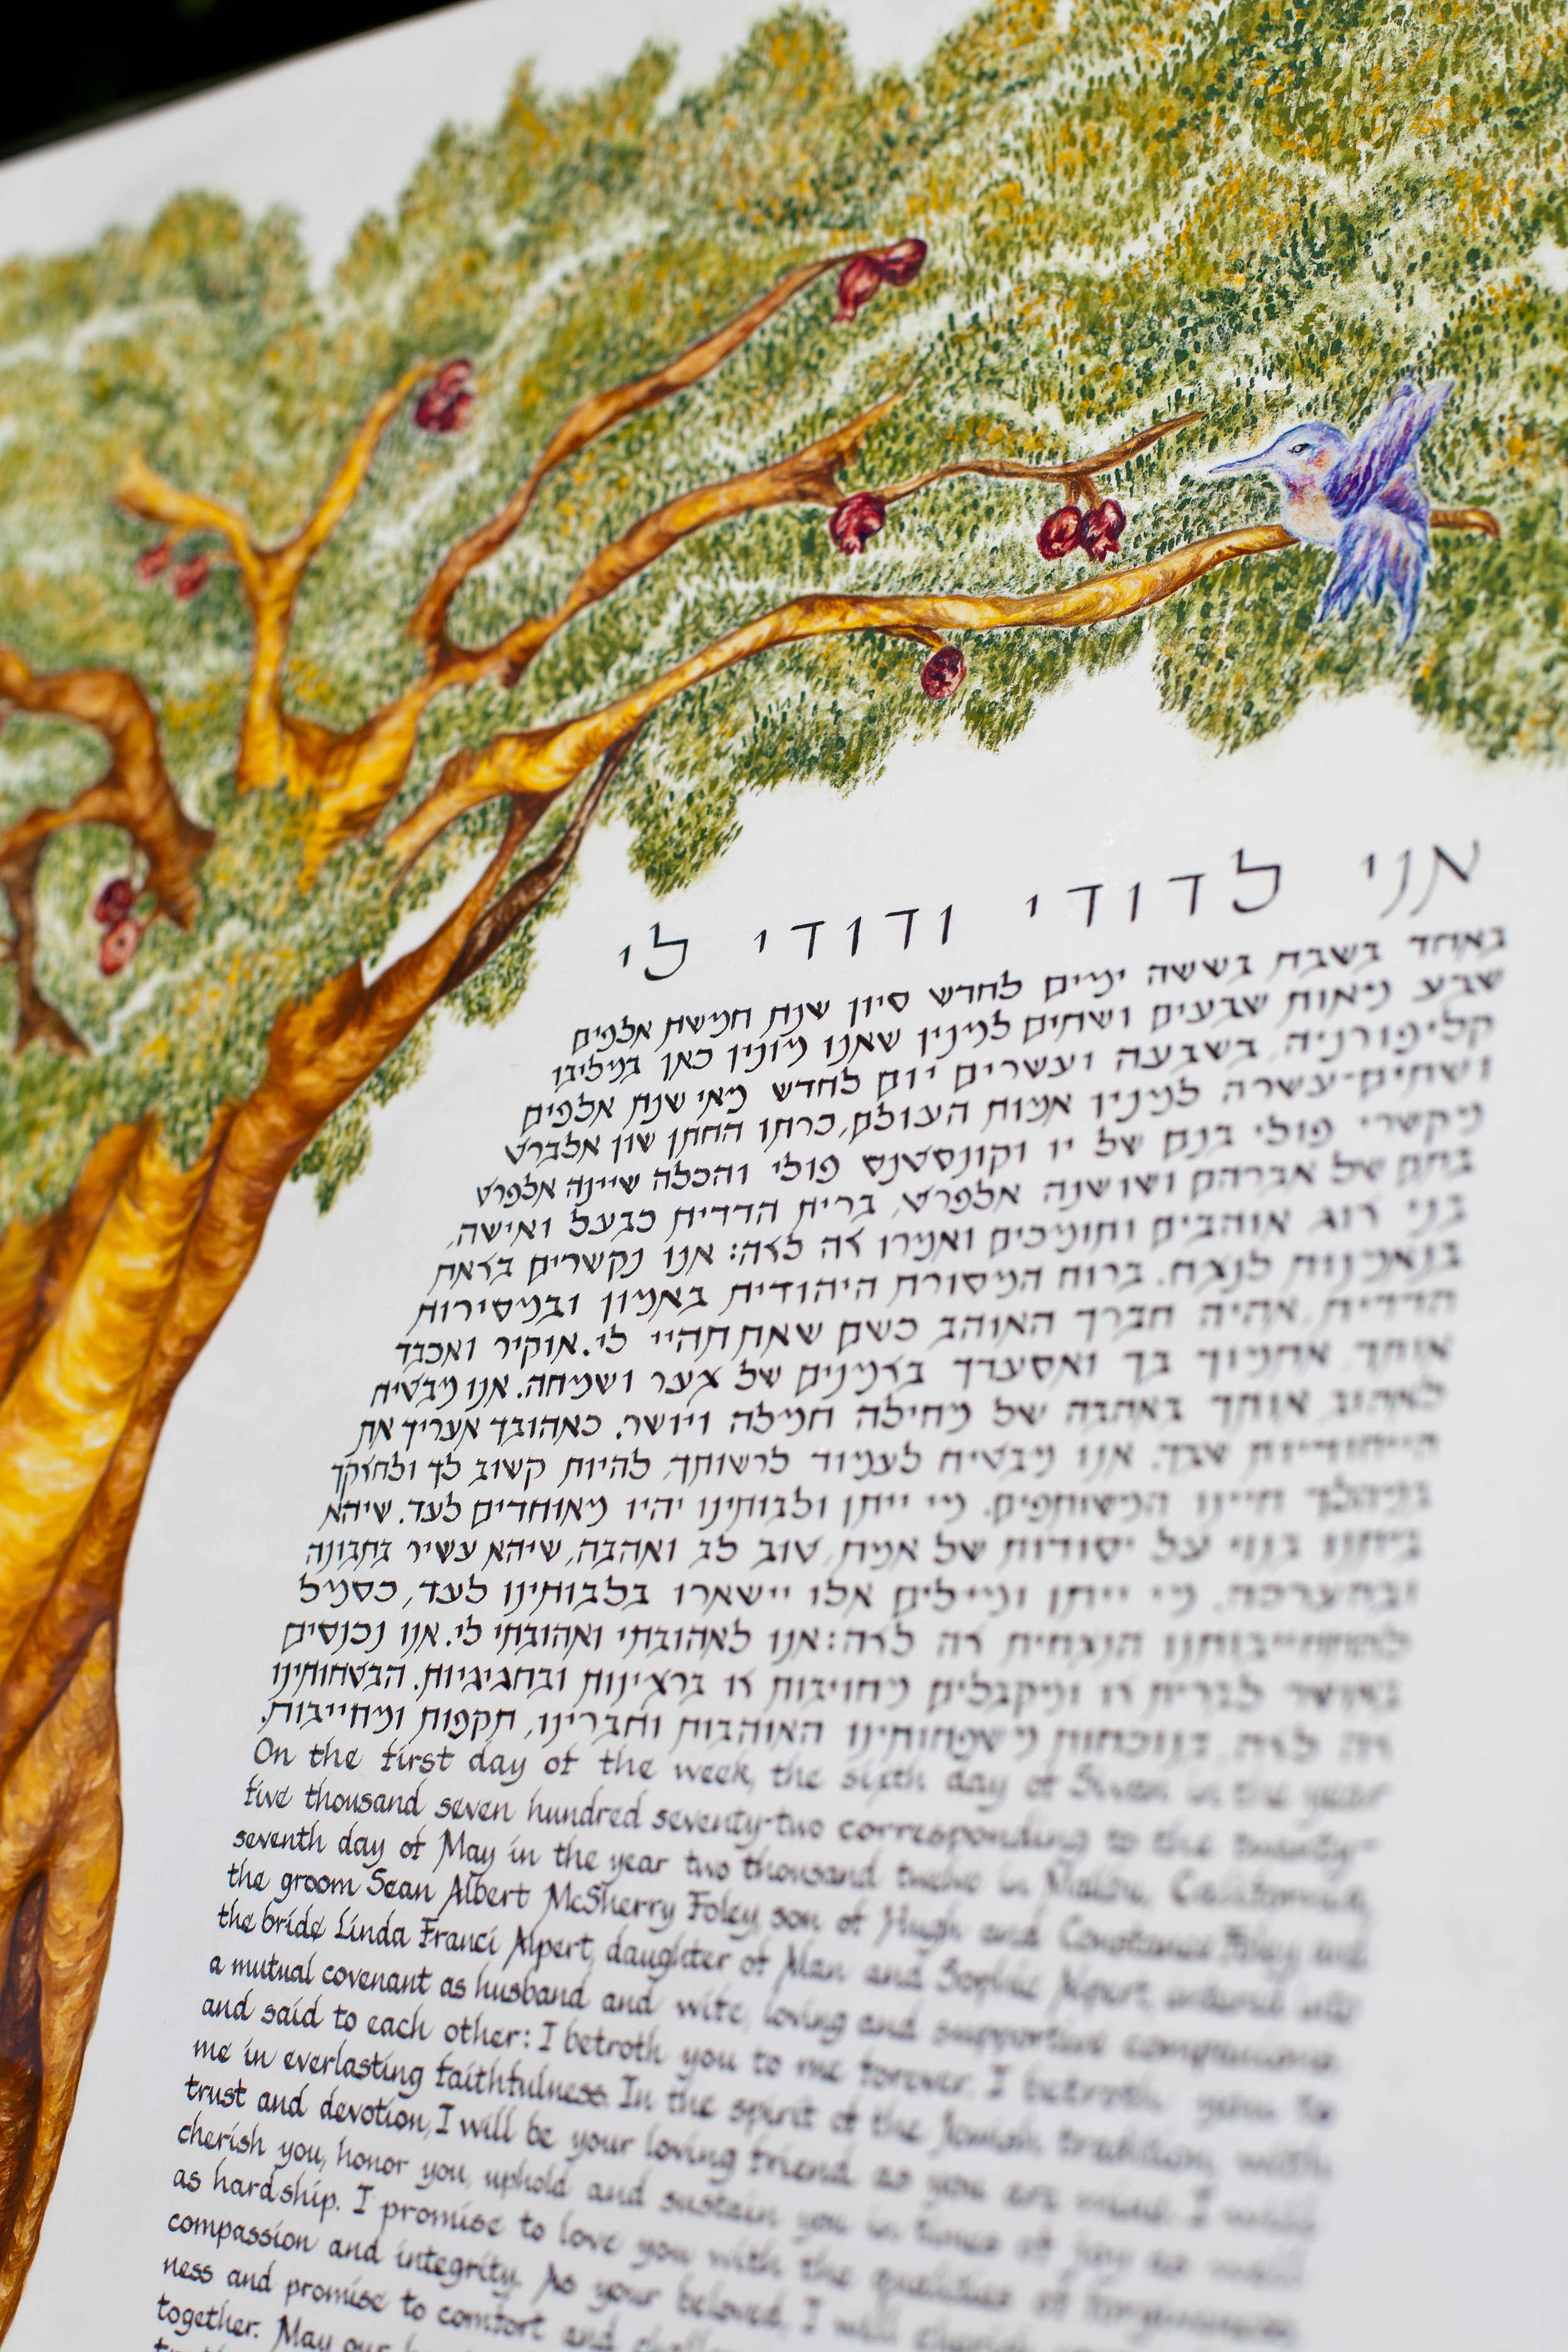 אני לדודי ודודי לי
באחד בשבת בששה ימים לחדש סיון שנת חמישת אלפים
שבע מאות שבעים ושתים למנין שאנו מונין כאן במליבו
קליפורניה, בשבעה ועשרים יום לחדש מאי שנת אלפים
ושתים-עשרה למנין אמות העולם, כרתו החתן שון אלברט
מקשרי פולי בנם של יו וקונסטנס פולי והכלה שיינה אלפרט
בתם של אברהם ושושנה אלפרט, ברית הדדית כבעל ואישה,
בני זוג אוהבים ותומכים ואמרו זה לזה: אנו נקשרים בזאת
בנאמנות לנצח. ברוח המסורת היהודית באמון ובמסירות
הדדית, אהיה חברך האוהב כשם שאת תהיי לי. אוקיר ואכבד
אותך, אתמוך בך ואסעדך בזמנים של צער ושמחה. אנו מבטיח
לאהוב אותך באהבה של מחילה חמלה ויושר. כאהובך אעריך את
הייחודיות שבך. אנו מבטיח לעמוד לרשותך, להיות קשוב לך ולחזקך
במהלך חיינו המשותפים. מי ייתן ולבותינו יהיו מאוחדים לעד. שיהא
ביתנו בנוי על יסודות של אמת, טוב לב ואהבה, שיהא עשיר בתבונה
ובהערכה. מי ייתן ומילים אלו יישארו בלבותינו לעד, כסמל
להתחייבותנו הנצחית זה לזה: אנו לאהובתי ואהובתי לי. אנו נכנסים
באושר לברית זו ומקבלים מחויבות זו ברצינות ובחגיגיות. הבטחותינו
זה לזה, בנוכחות משפחותינו האוהבות וחברינו, תקפות ומחייבות.
On the first day of the week, the sixth day of Sivan in the year
five thousand seven hundred seventy-two corresponding to the twenty-
seventh day of May in the year two thousand twelve in Malibu, California,
the groom Sean Albert McSherry Foley, son of Hugh and Constance Foley and
the bride Linda Franci Alpert, daughter of Alan and Sophie Alpert, entered into
a mutual covenant as husband and wife, loving and supportive companions,
and said to each other: I betroth you to me forever. I betroth you to
me in everlasting faithfulness. In the spirit of the Jewish tradition, with
trust and devotion, I will be your loving friend as you are mine. I will
cherish you, honor you, uphold and sustain you in times of joy as well
as hardship. I promise to love you with the qualities of forgiveness,
compassion and integrity. As your beloved, I will cherish your
ness and promise to comfort and challenge
together. May our